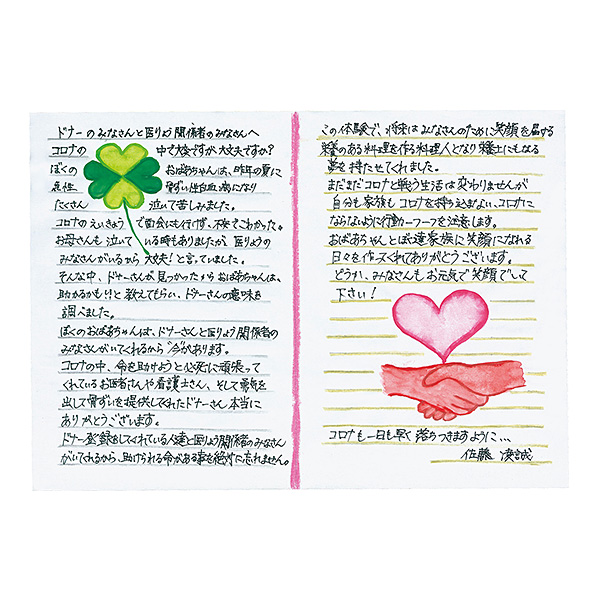 ドナーのみなさんと医りょう関係者のみなさんへ
コロナの中で大変ですが、大丈夫ですか?
ぼくのおばあちゃんは、昨年の夏に
急性骨ずい性白血病になり
たくさん泣いて苦しみました。
コロナのえいきょうで面会にも行けず、不安でこわかった。
お母さんも泣いている時もありましたが、医りょうの
みなさんがいるから大丈夫!と言っていました。
そんな中、ドナーさんが見つかったからおばあちゃんは、
助かるかも!!と教えてもらい、ドナーさんの意味を
調べました。
ぼくのおばあちゃんは、ドナーさんと医りょう関係者の
みなさんがいてくれるから“今”があります。
コロナの中、命を助けようと必死に頑張って
くれているお医者さんや看護士さん、そして勇気を
出して骨ずいを提供してくれたドナーさん本当に
ありがとうございます。
ドナー登録をしてくれている人達と医りょう関係者のみなさん
がいてくれるから、助けられる命がある事を絶対に忘れません。
この体験で、将来はみなさんのために笑顔を届ける
栄養のある料理を作る料理人となり栄養士にもなる
夢を持たせてくれました。
まだまだコロナと戦う生活は変わりませんが
自分も家族もコロナを持ち込まない、コロナに
ならないように行動一つ一つを注意します。
おばあちゃんとぼく達家族に笑顔になれる
日々を作ってくれてありがとうございます。
どうか、みなさんもお元気で笑顔でいて
下さい!
コロナも一日も早く落ちつきますように…
佐藤 湊誠